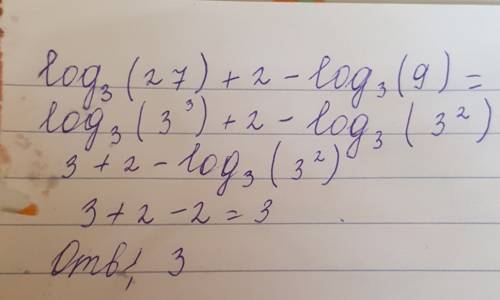 log₃(27) + 2 - log₃(9) =
log₃(3³) + 2 - log₃(3²)
3 + 2 - log₃(3²)
3 + 2 - 2 = 3
Отв: 3